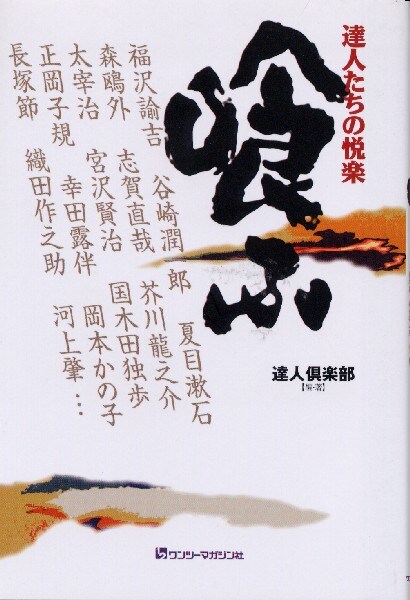 達人たちの悦楽
喰ふ
福沢諭吉
谷崎潤一郎
夏目漱石
森鴎外
志賀直哉
芥川龍之介
太宰治
宮沢賢治
国木田独歩
正岡子規
幸田露伴
岡本かの子
長塚節
織田作之助
河上肇…
達人倶楽部
【編・著】
ワンツーマガジン社